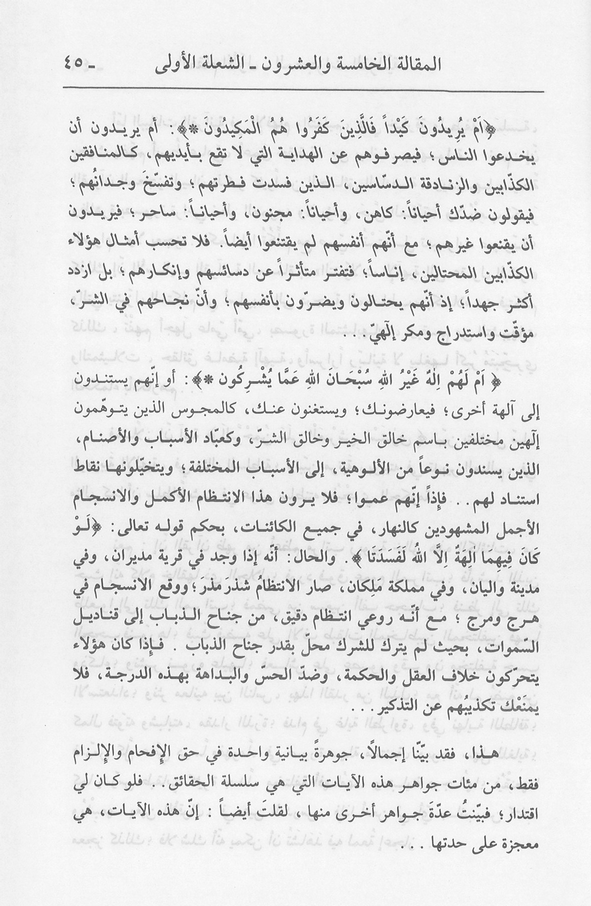 المقالة الخامسة والعشرون ـ الشعلة الأولى ـ ٤٥
﴿اَمْ يُرِيدُونَ كَيْداً فَالَّذِينَ كَفَرُوا هُمُ الْمَكِيدُونَ *﴾: أم يريدون أن
يخدعوا الناس؛ فيصرفوهم عن الهداية التي لا تقع بأيديهم، كالمنافقين
الكذّابين والزنادقة الدسّاسين، الذين فسدت فطرتهم؛ وتفسّخَ وجدانُهم؛
فيقولون ضدّك أحياناً: كاهن، وأحياناً: مجنون، وأحياناً: ساحر؛ فيريدون
أن يقنعوا غيرهم؛ مع أنّهم أنفسهم لم يقتنعوا أيضاً. فلا تحسب أمثال هؤلاء
الكذّابين المحتالين، إناساً؛ فتفتر متأثراً عن دسائسهم وإنكارهم؛ بل ازدد
أكثر جهداً؛ إذ أنّهم يحتالون ويضرّون بأنفسهم؛ وأنّ نجاحهم في الشرّ،
مؤقّت واستدراج ومكر إلٓهيّ...
﴿ اَمْ لَهُمْ اِلٰهٌ غَيْرُ اللهِ سُبْحَانَ اللهِ عَمَّا يُشْرِكُون *﴾: أو إنّهم يستندون
إلى آلهة أخرى؛ فيعارضونك؛ ويستغنون عنك، كالمجوس الذين يتوهّمون
إلٓهين مختلفين باسم خالق الخير وخالق الشرّ، وكعبّاد الأسباب والأصنام،
الذين يسندون نوعاً من الألوهية، إلى الأسباب المختلفة؛ ويتخيّلونها نقاط
استناد لهم.. فإذاً إنّهم عموا؛ فلا يرون هذا الانتظام الأكمل والانسجام
الأجمل المشهودين كالنهار، في جميع الكائنات، بحكم قوله تعالى: ﴿لَوْ
كَانَ فِيهِمَا اٰلِهَةٌ اِلاَّ اللهُ لَفَسَدَتَا ﴾. والحال: أنّه إذا وجد في قرية مديران، وفي
مدينة واليان، وفي مملكة مَلِكان، صار الانتظامُ شذرَ مذرَ؛ ووقع الانسجام في
هرج ومرج ؛ مع أنّه روعي انتظام دقيق، من جناح الذباب إلى قناديل
السّموات، بحيث لم يترك للشرك محلّ بقدر جناح الذباب . فإذا كان هؤلاء
يتحرّكون خلاف العقل والحكمة، وضدّ الحسّ والبداهة بهذه الدرجة، فلا
يمنَعْك تكذيبُهم عن التذكير...
هذا، فقد بيّنّا إجمالاً، جوهرةً بيانية واحدة في حق الإفحام والإلزام
فقط، من مئات جواهر هذه الآيات التي هي سلسلة الحقائق.. فلو كان لي
اقتدار؛ فبيّنتُ عدّةَ جواهر أخرى منها ، لقلتَ أيضاً : إنّ هذه الآيات، هي
معجزة على حدتها ...